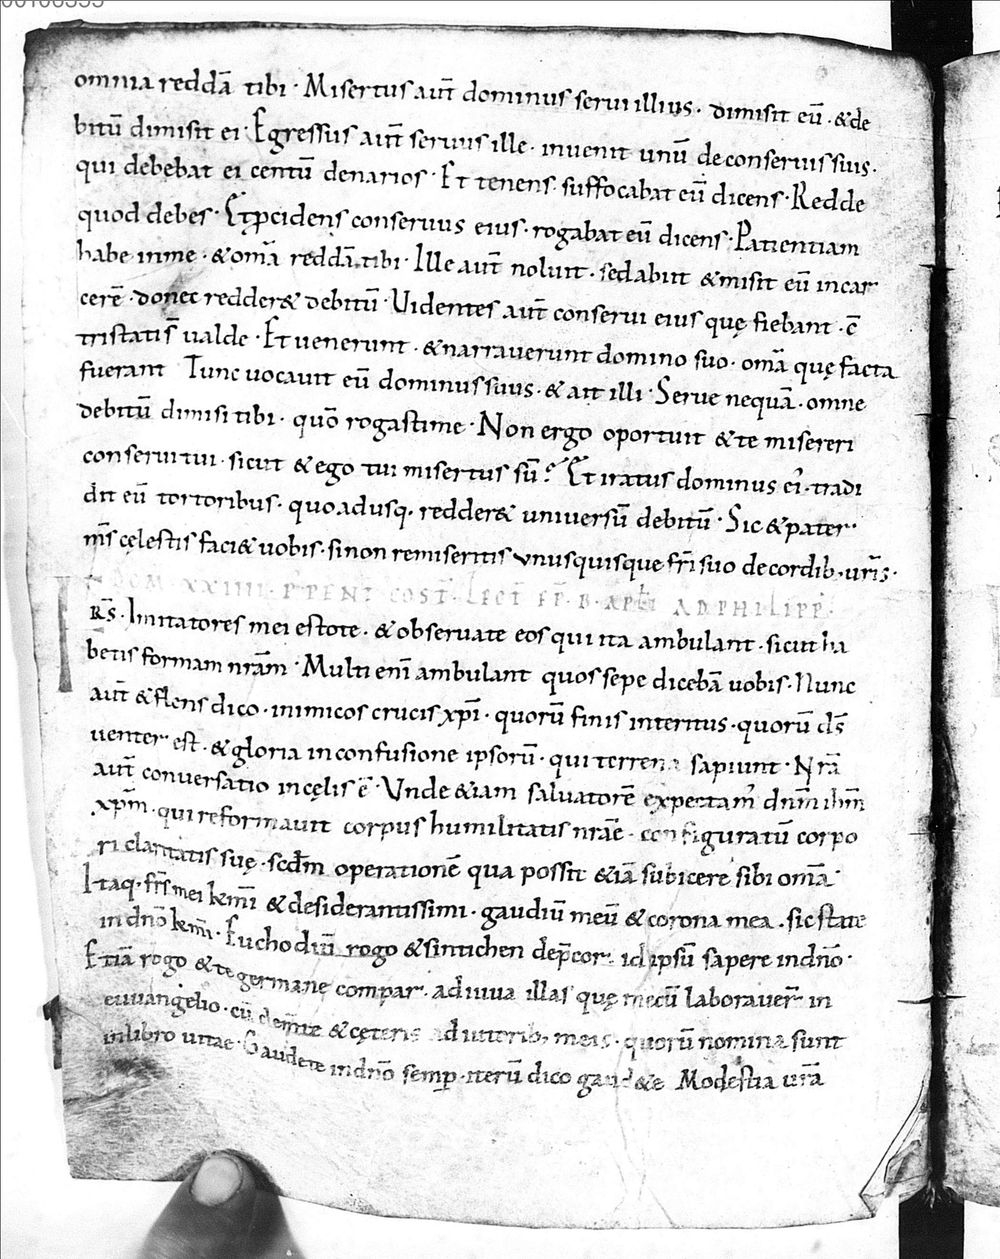 omnia reddā tibi · Misertus aut̄ dominus serui illius · dimisit eū · & de
bitū dimisit ei · Egressus aut̄ seruus ille · inuenit unū de conseruis suis ·
qui debebat ei centū denarios · Et tenens suffocabat eū dicens · Redde
quod debes · Et p̄cidens conseruus eius · rogabat eū dicens · Patientiam
habe in me · & om̄a reddā tibi · Ille aut̄ noluit · sed abiit & misit eū in car
cerē · donec redder& debitū · Uidentes aut̄ conserui eius quę fiebant · c̄
tristati s̄ ualde · Et uenerunt · & narrauerunt domino suo · om̄a quę facta
fuerant Tunc uocauit eū dominus suus · & ait illi · Serue nequā · omne
debitū dimisi tibi · quō rogasti me · Non ergo oportuit & te misereri
conserui tui · sicut & ego tui misertus sū? Et iratus dominus ei' · tradi
dit eū tortoribus · quoadusq. redder& uniuersū debitū · Sic & pater
m̄s cęlestis faci& uobis · si non remiseritis unusquisque fr̄i suo de cordib. ur̄is ·
DOM XXIIII P̄ PENT COST̄ LECT̄ EP̄ B APLI AD PHILIPP̄
R̄S · Imitatores mei estote · & obseruate eos qui ita ambulant · sicut ha
betis formam nr̄am · Multi eni ambulant quos sepe dicebā uobis · Nunc
aut̄ & flens dico · inimicos crucis xp̄i · quorū finis interitus · quorū d̄s
uenter est · & gloria in confusione ipsorū · qui terrena sapiunt · Nr̄a
aut̄ conuersatio in cęlis ē · Unde &iam saluatorē expectam' dn̄m ih̄m
xp̄m · qui reformauit corpus humilitatis nr̄ae · configuratū corpo
ri claritatis suę · scd̄m operationē qua possit &iā subicere sibi om̄a
Itaq. fr̄s mei k̄mi & desiderantissimi · gaudiū meū & corona mea · sic state
in dn̄o k̄mi · Euchodiū rogo & sintichen dep̄cor · id ipsū sapere in dn̄o ·
Etiā rogo & te germane compar · adiuua illas quę mecū laborauer̄ in
euuangelio · cū clem̄te & cęteris adiutorib; meis · quorū nomina sunt
in libro uitae · Gaudete in dn̄o semp̄ · iterū dico gaud&e Modestia ur̄a